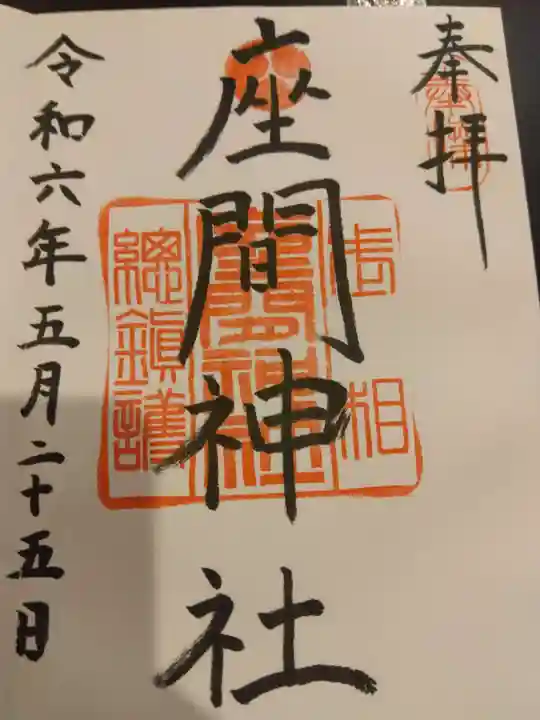 奉拝
座間神社
相
總鎮護
令和六年五月二十五日